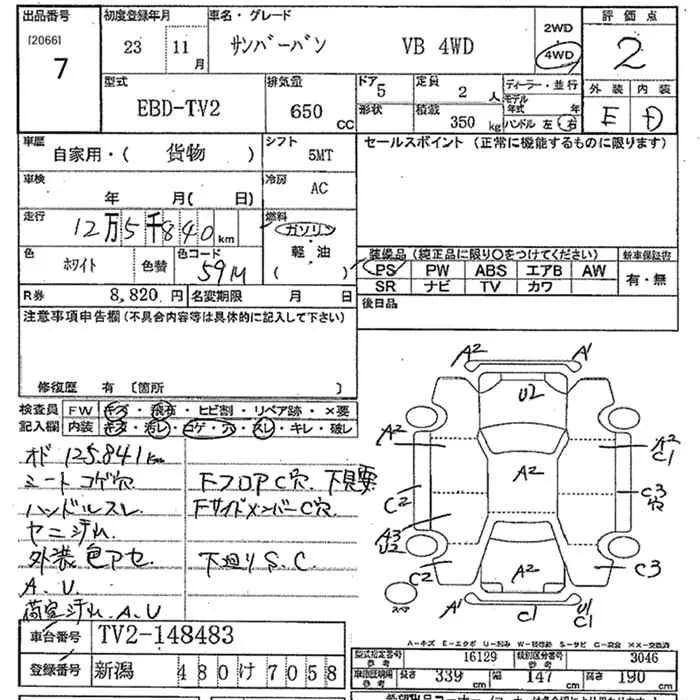 出品番号 初度登録年月 車名・グレード 評価点
[2066] 23 11月 サンバーバン VB 4WD 2WD 4WD 2
7
型式 排気量 ドア 5 定員 2人 ディーラー・並行 外装 内装
EBD-TV2 650 CC 形状 積載 350 kg モデル年式 年 ハンドル 左 右 E D
車歴 自家用・( 貨物 ) シフト 5MT セールスポイント (正常に機能するものに限ります)
車検 年 月( 日) 冷房 AC
走行 12万5千840km 燃料 ガソリン 軽・油 ( )
色 ホワイト 色替 色コード 59M
装備品 (純正品に限り○をつけてください) 新車保証書
PS PW ABS エアB AW 有・無
SR ナビ TV カワ
R券 8,820円 名変期限 月 日 後日品
注意事項申告欄 (不具合内容等は具体的に記入して下さい)
修復歴 有 〔箇所 〕
検査員 FW キズ・飛石・ヒビ割・リペア跡・×要
記入欄 内装 キズ・汚レ・コゲ・穴・スレ・キレ・破レ
オド 125.841km
シート コゲ穴 FフロアC穴 下見要
ハンドルスレ FサイドメンバーC穴
ヤニ汚れ
外装 色アセ 下廻りS.C
A.U
荷室汚れ.A.U
A2 A1
U2
A2 A2 A2 C1
C2 C3
A3 U2
C2 A2 C3
スペア A1 C1 U1 C1
車台番号 TV2-148483
登録番号 新潟 480け7058
型式指定番号 参考 16129 類別区分番号 参考 3046
長さ 339cm 幅 147cm 高さ 190cm